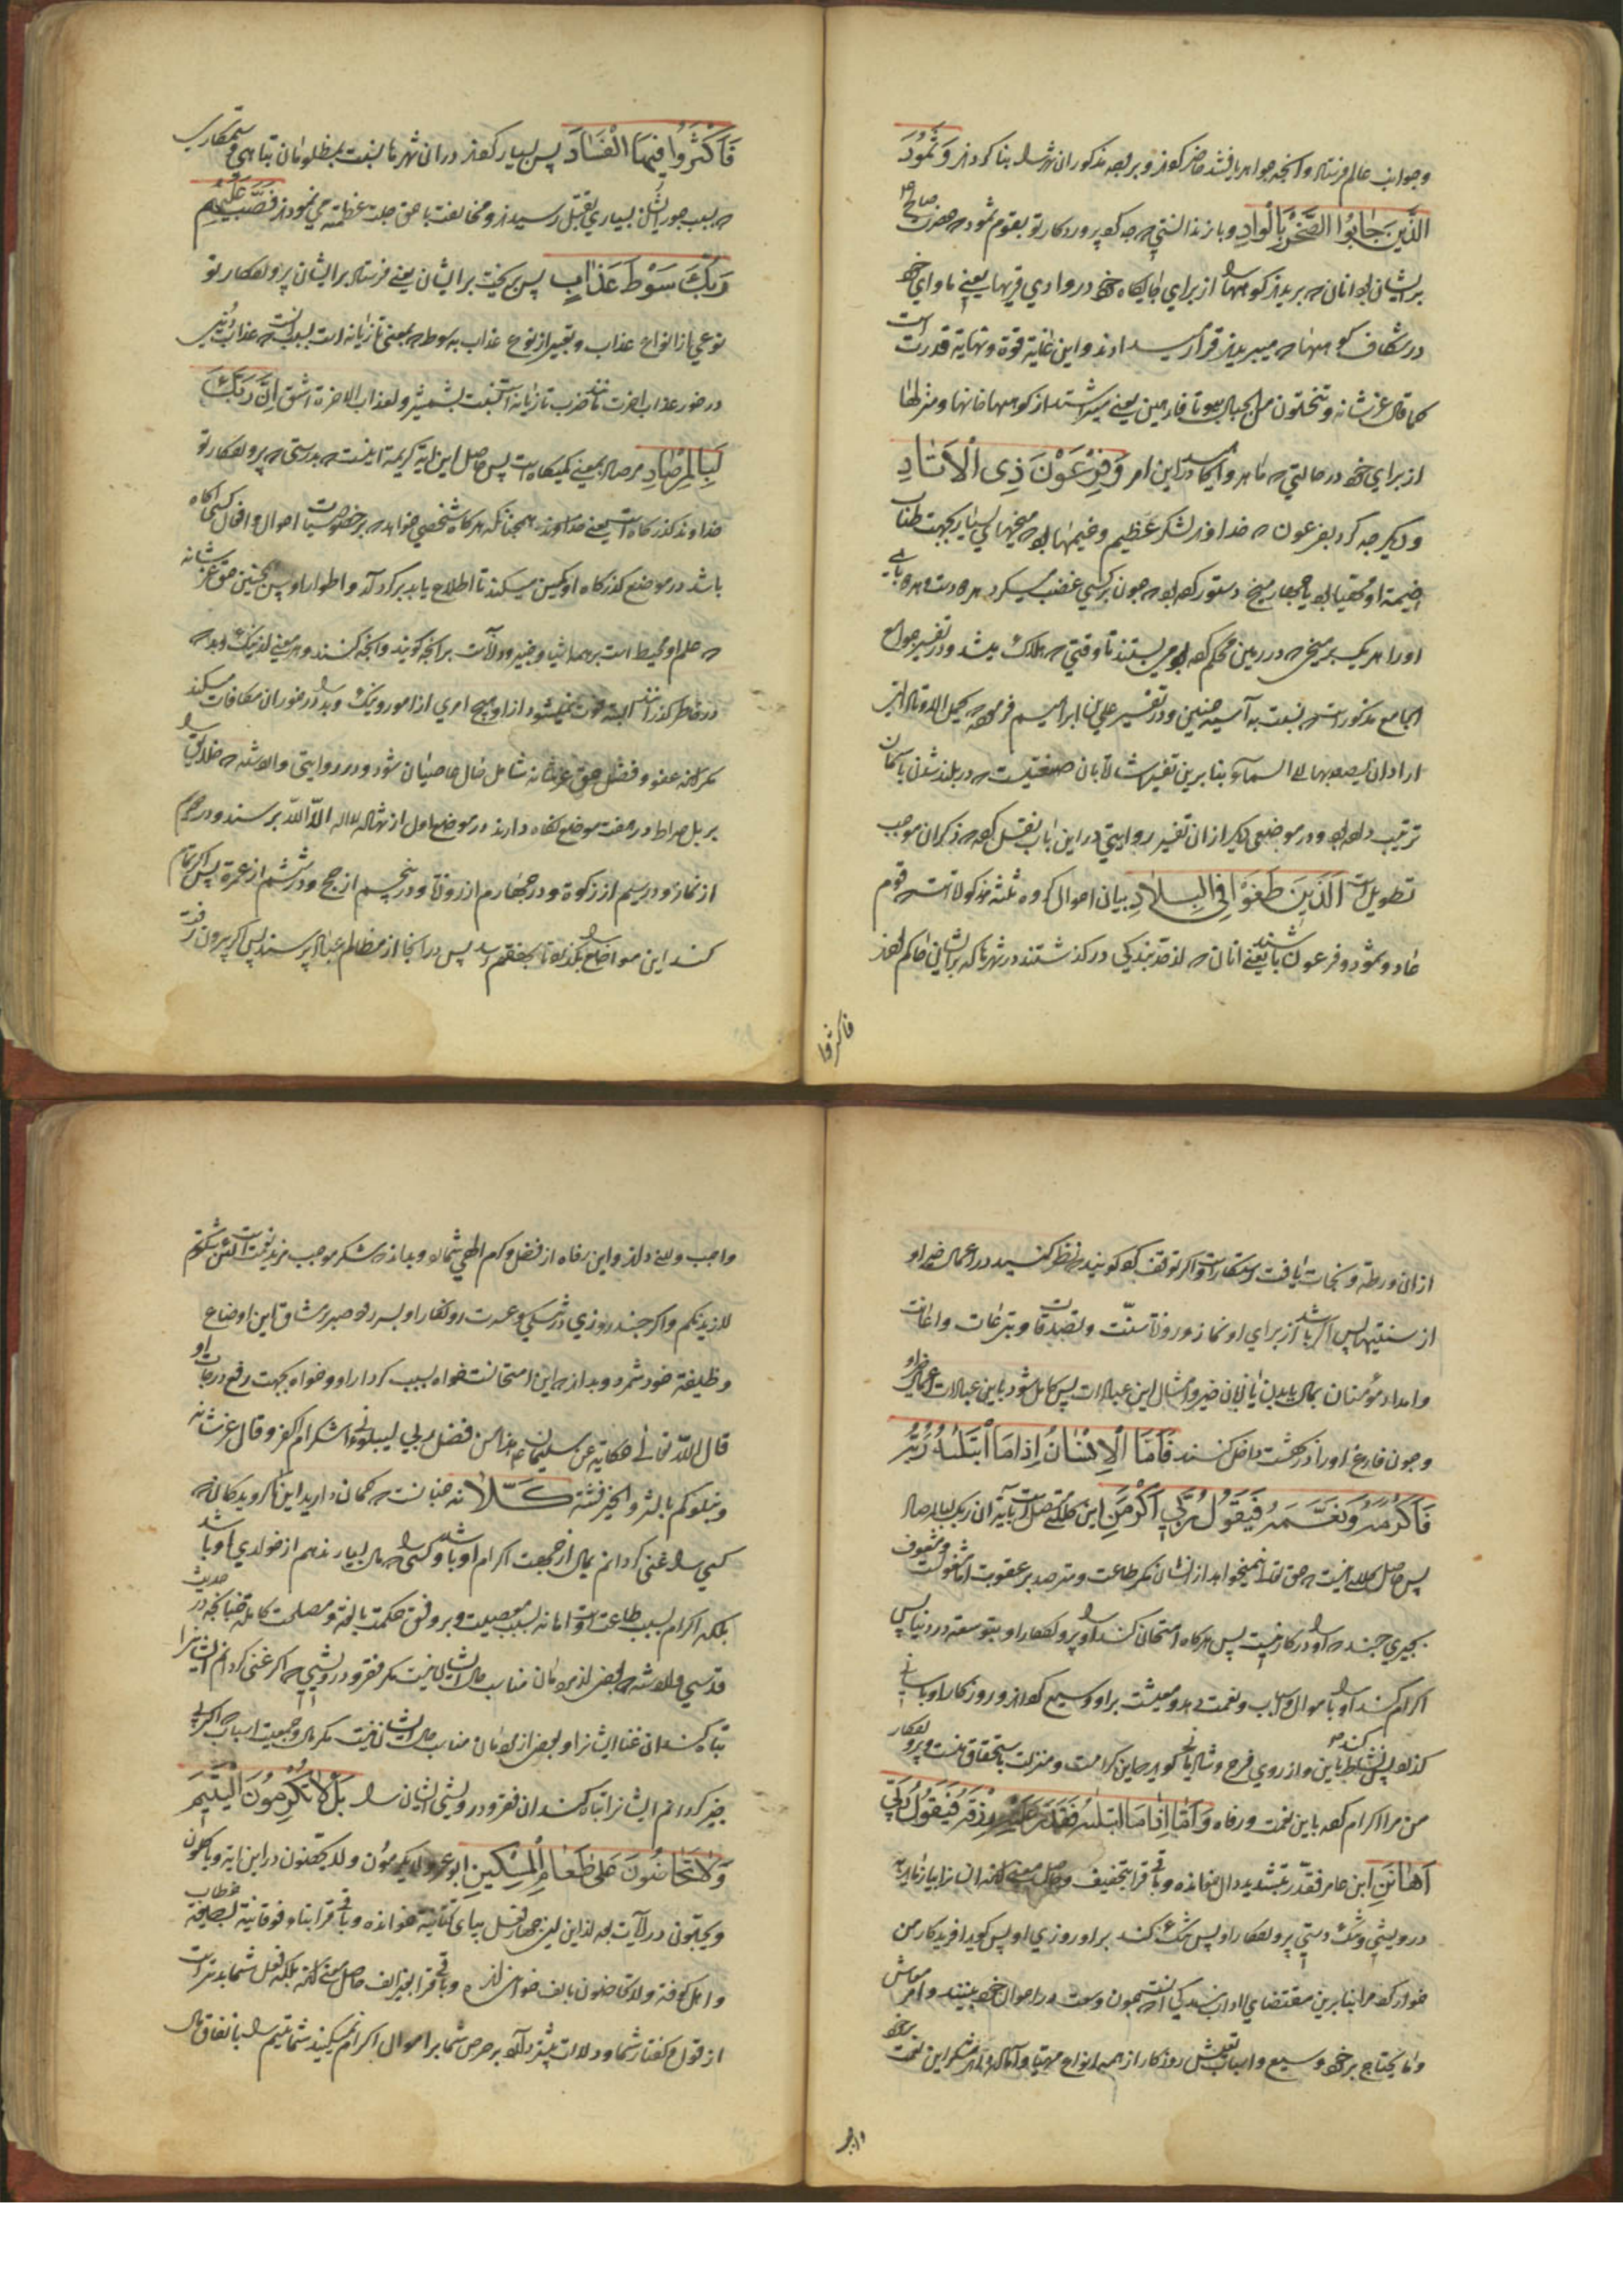 و جوانب عالم فرستاد و آنچه جواهر یافتند حاضر کردند و بر وجه مذکور ان شهر را بنا کردند وَثَمُودَ
الَّذِينَ جَابُوا الصَّخْرَ بِالْوَادِ و باز ندانستی که چه کرد پروردکار تو بقوم ثمود که حضرت صالح
بر ایشان بود انان که بریدند کوهها را از برای جایکاه خود در وادی قریها یعنی ماوای خود
در شکاف کوهها که میبریدند قرار میدادند و این غایة قوة و نهایة قدرت است
کما قال عز شانه و تنحتون من الجبال بیوتا فارهین یعنی میتراشند از کوهها خانها و منزلها
از برای خود در حالتی که ماهر و این امر وَفِرْعَوْنَ ذِي الْأَوْتَادِ
و دیکر چه کرد بفرعون که خداوند لشکر عظیم و خیمها بود که میخهای بسیار بجهت طناب
خیمه او مهیا بود یا چهار میخ دستور کرده بود که چون بر کسی غضب میکرد هر دست و هر پای
او را هر یک بر میخی که در زمین محکم کرده بود می بستند تا وقتی که هلاک میشد و در تفسیر جوامع
الجامع مذکور است که نسبت به آسیه چنین و در تفسیر علی بن ابراهیم فرموده
اراد ان یصعد بها الی السماء و بنا برین تفسیر اشارتی بان که در بلند شدن باسمان
ترتیب داده بود و در موضعی دیکر از ان تفسیر روایتی در این باب نقل کرده که ذکر ان موجب
تطویل است الَّذِينَ طَغَوْا فِي الْبِلَادِ بیان احوال کروه ثلثه مذکوره است که قوم
عاد و ثمود و فرعون باشند یعنی انان که از حد بندکی در کذشتند در شهرها که بر اینان حاکم بودند
فاکثروا
فَأَكْثَرُوا فِيهَا الْفَسَادَ پس بسیار کردند در ان شهرها نسبت بمظلومان تباهی و ستمکاری
که بسبب جور ایشان بسیاری بقتل رسیدند و مخالفت با حق جلت عظمته می نمودند فَصَبَّ عَلَيْهِمْ
رَبُّكَ سَوْطَ عَذَابٍ پس ریخت بر ایشان یعنی فرستاد بر ایشان پروردکار تو
نوعی از انواع عذاب و تعبیر از نوع عذاب به سوط که بمعنی تازیانه است بسبب انست که عذاب دنیا
در خور عذاب اخرت مانند ضرب تازیانه است نسبت بشمشیر و لعذاب الاخرة اشق إِنَّ رَبَّكَ
لَبِالْمِرْصَادِ مرصاد بمعنی کمینکاه است پس حاصل این ایة کریمه اینست که بدرستی که پروردکار تو
خداوند کذرکاه است یعنی همچنانکه هرکاه شخصی خواهد که بر خصوصیات احوال و افعال کسی اکاه
باشد در موضع کذرکاه او کمین میکند تا اطلاع یابد بر کردار و اطوار او پس همچنین حق عز شانه
که علم او محیط است بر همه اشیا و خبیر و داناست بر آنچه کویند و آنچه کنند و هر معنی از نیک و بد که
در خاطر کذرانند البته فوت نمیشود از او هیچ امری از امور و نیک و بد را در خور ان مکافات میکند
مکر انکه عفو و فضل حق عز شانه شامل حال عاصیان شود و در روایتی وارد شده که خلایق را
بر پل صراط در هفت موضع نکاه دارند در موضع اول از شهادت لا اله الا الله پرسند و در دوم
از نماز و در سیم از زکوة و در چهارم از روزه و در پنجم از حج و در ششم از عمره پس اکر تمام
کند این مواضع را بکذرد تا بهفتم رسد پس در آنجا از مظالم عباد پرسند پس اکر بیرون رفت
از ان ورطه و نجات یافت رستکار است و اکر توقف کرد کویند که نظر کنید در اعمال خیر او
از سنتیها پس اکر باشد از برای او نماز و روزه سنت و تصدقات و تبرعات و اعانت
و امداد مؤمنان بمال یا ببدن یا بزبان خیر و امثال این عبادات پس کامل شود باین عبادات اعمال خیر او
و چون فارغ او را در بهشت داخل کنند فَأَمَّا الْإِنْسَانُ إِذَا مَا ابْتَلَاهُ رَبُّهُ
فَأَكْرَمَهُ وَنَعَّمَهُ فَيَقُولُ رَبِّي أَكْرَمَنِ این کلام متصل است بآیة ان ربک لبالمرصاد
پس حاصل کلام اینست که حق تعالی نمیخواهد از انسان مکر طاعت و مترصد بر عقوبت اما مشغولست و مشعوف
بچیزی چند که او را در کار نیست پس هر کاه امتحان کند او را پروردکار او بتوسعه در دنیا پس
اکرام کند او را باموال و اسباب و نعمت دهد و معیشت بر او وسیع کرداند و روزکار او باسانی
کذراند پس نشاط باین و از روی فرح و شادمانی کوید که این کرامت و منزلت باستحقاق منست و پروردکار
من مرا اکرام کرده باین نعمت و رفاه وَأَمَّا إِذَا مَا ابْتَلَاهُ فَقَدَرَ عَلَيْهِ رِزْقَهُ فَيَقُولُ رَبِّي
أَهَانَنِ ابن عامر فقدّر بتشدید دال خوانده و باقی قرا بتخفیف و حاصل معنی انکه انسان را بیازماید به
درویشی و تنک دستی پروردکار او پس تنک کند بر او روزی او پس کوید افریدکار من
خوار کرد مرا بنا برین مقتضای ادای بندکی انست که چون وسعت در احوال خود بینند و امر معاش
و ما یحتاج بر خود وسیع و اسباب تعیش روزکار از همه انواع مهیا و آماده دارد شکر این نعمت بر خود
واجب
واجب و لازم داند و این رفاه از فضل و کرم الهی شمارد و بداند که شکر موجب مزید نعمت است لئن شکرتم
لازیدنکم و اکر چند روزی در تنکی و عسرت روزکار او بسر رود صبر بر مشاق این اوضاع
وظیفه خود شمرد و بداند که این امتحانست خواه بسبب کردار او و خواه بجهت رفع درجات او
قال الله تعالی حکایة عن سلیمان هذا من فضل ربی لیبلونی أاشکر ام اکفر و قال عز شانه
و نبلوکم بالشر و الخیر فتنة كَلَّا نه چنانست که کمان دارید این کروه بدکمان که
کسی را غنی کردانم بمال از جهت اکرام او باشد و کسی را که مال بسیار ندهم از خواری او باشد
بلکه اکرام بسبب طاعت است و اهانه بسبب معصیت و بر وفق حکمت بالغه و مصلحت کامله چنانچه در حدیث
قدسی وارد شده که بعضی از بندکان مناسب حال ایشان نیست مکر فقر و درویشی که اکر غنی کردانم ایشانرا
تباه کند ان غنا ایشانرا و بعضی از بندکان مناسب حال ایشان نیست مکر مال و جمعیت اسباب که اکر بی
چیز کردانم ایشانرا تباه کند ان فقر و درویشی ایشان را بَلْ لَا تُكْرِمُونَ الْيَتِيمَ
وَلَا تَحَاضُّونَ عَلَى طَعَامِ الْمِسْكِينِ ابو عمرو لا یکرمون و لا یحضون در این ایة و یاکلون
و یحبون در آیات بعد از این این چهار فعل بیای تحتانیه خوانده و باقی قرا بتاء فوقانیة بصیغه خطاب
و اهل کوفه و لا تحاضون بالف خوانده اند و باقی قرا بغیر الف حاصل معنی انکه بلکه فعل شما بدتر است
از قول و کفتار شما و دلالت بیشتر دارد بر حرص شما بر اموال اکرام نمیکنید شما یتیم را بانفاق مال